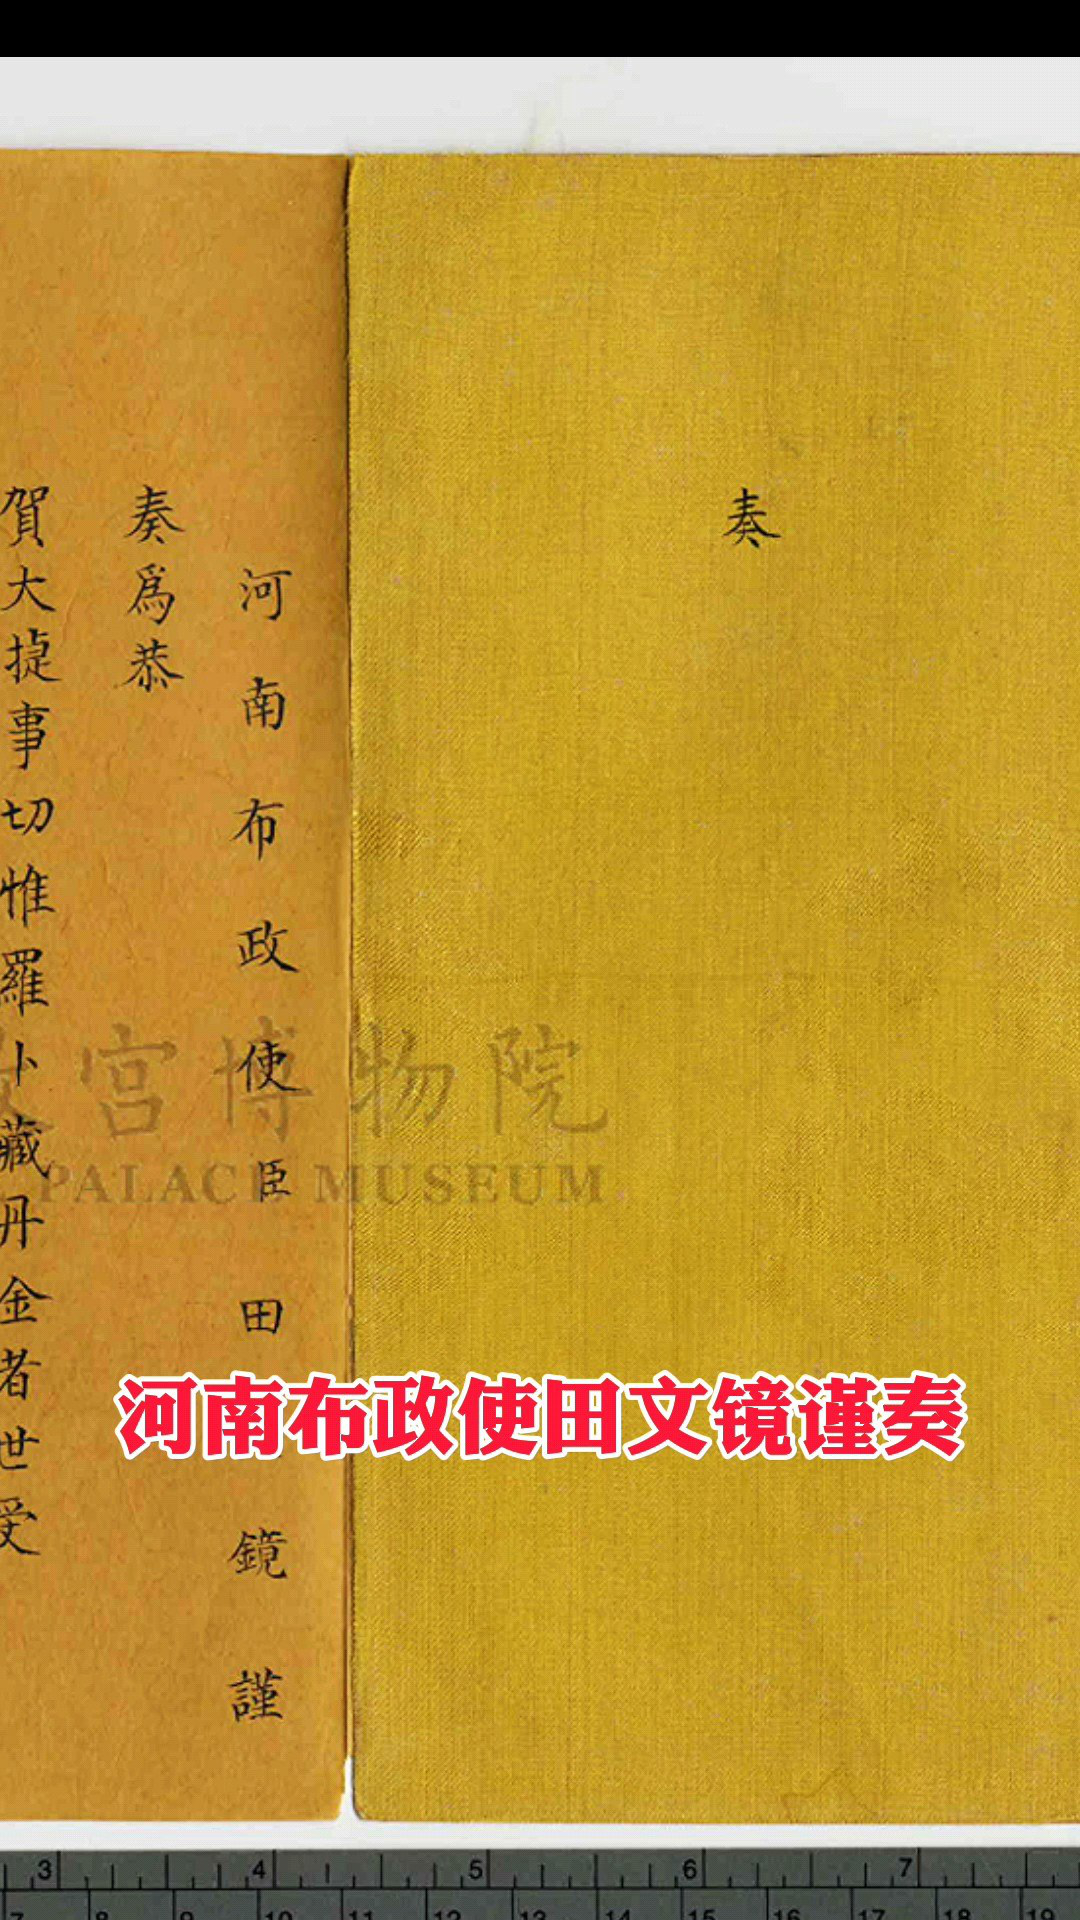 奏
河南布政使臣田鏡謹
奏爲恭
賀大㨗事切惟羅卜藏丹金者世受
宮博物院
PALACE MUSEUM
河南布政使田文镜谨奏
3 4 5 6 7
7 8 9 10 11 12 13 14 15 16 17 18 19